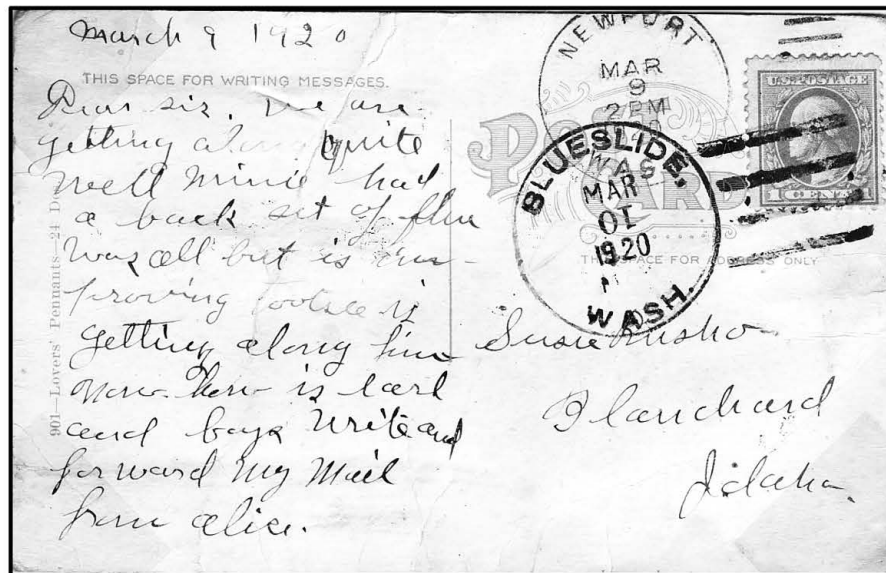 March 9 1920
THIS SPACE FOR WRITING MESSAGES.
Dear sis, we are
getting along quite
well Minie had
a back set of flue
was all but is im-
proving tootsie is
getting along fine
now. How is Earl
and boys write and
forward my mail
from alice.
901—Lovers' Pennants—24 De
NEWPORT
MAR
9
2 PM
WAS
POST CARD
BLUESLIDE,
MAR
01
1920
WASH.
U.S. POSTAGE
1 CENT 1
THIS SPACE FOR ADDRESS ONLY
Susie Rusho
Blanchard
Idaho.